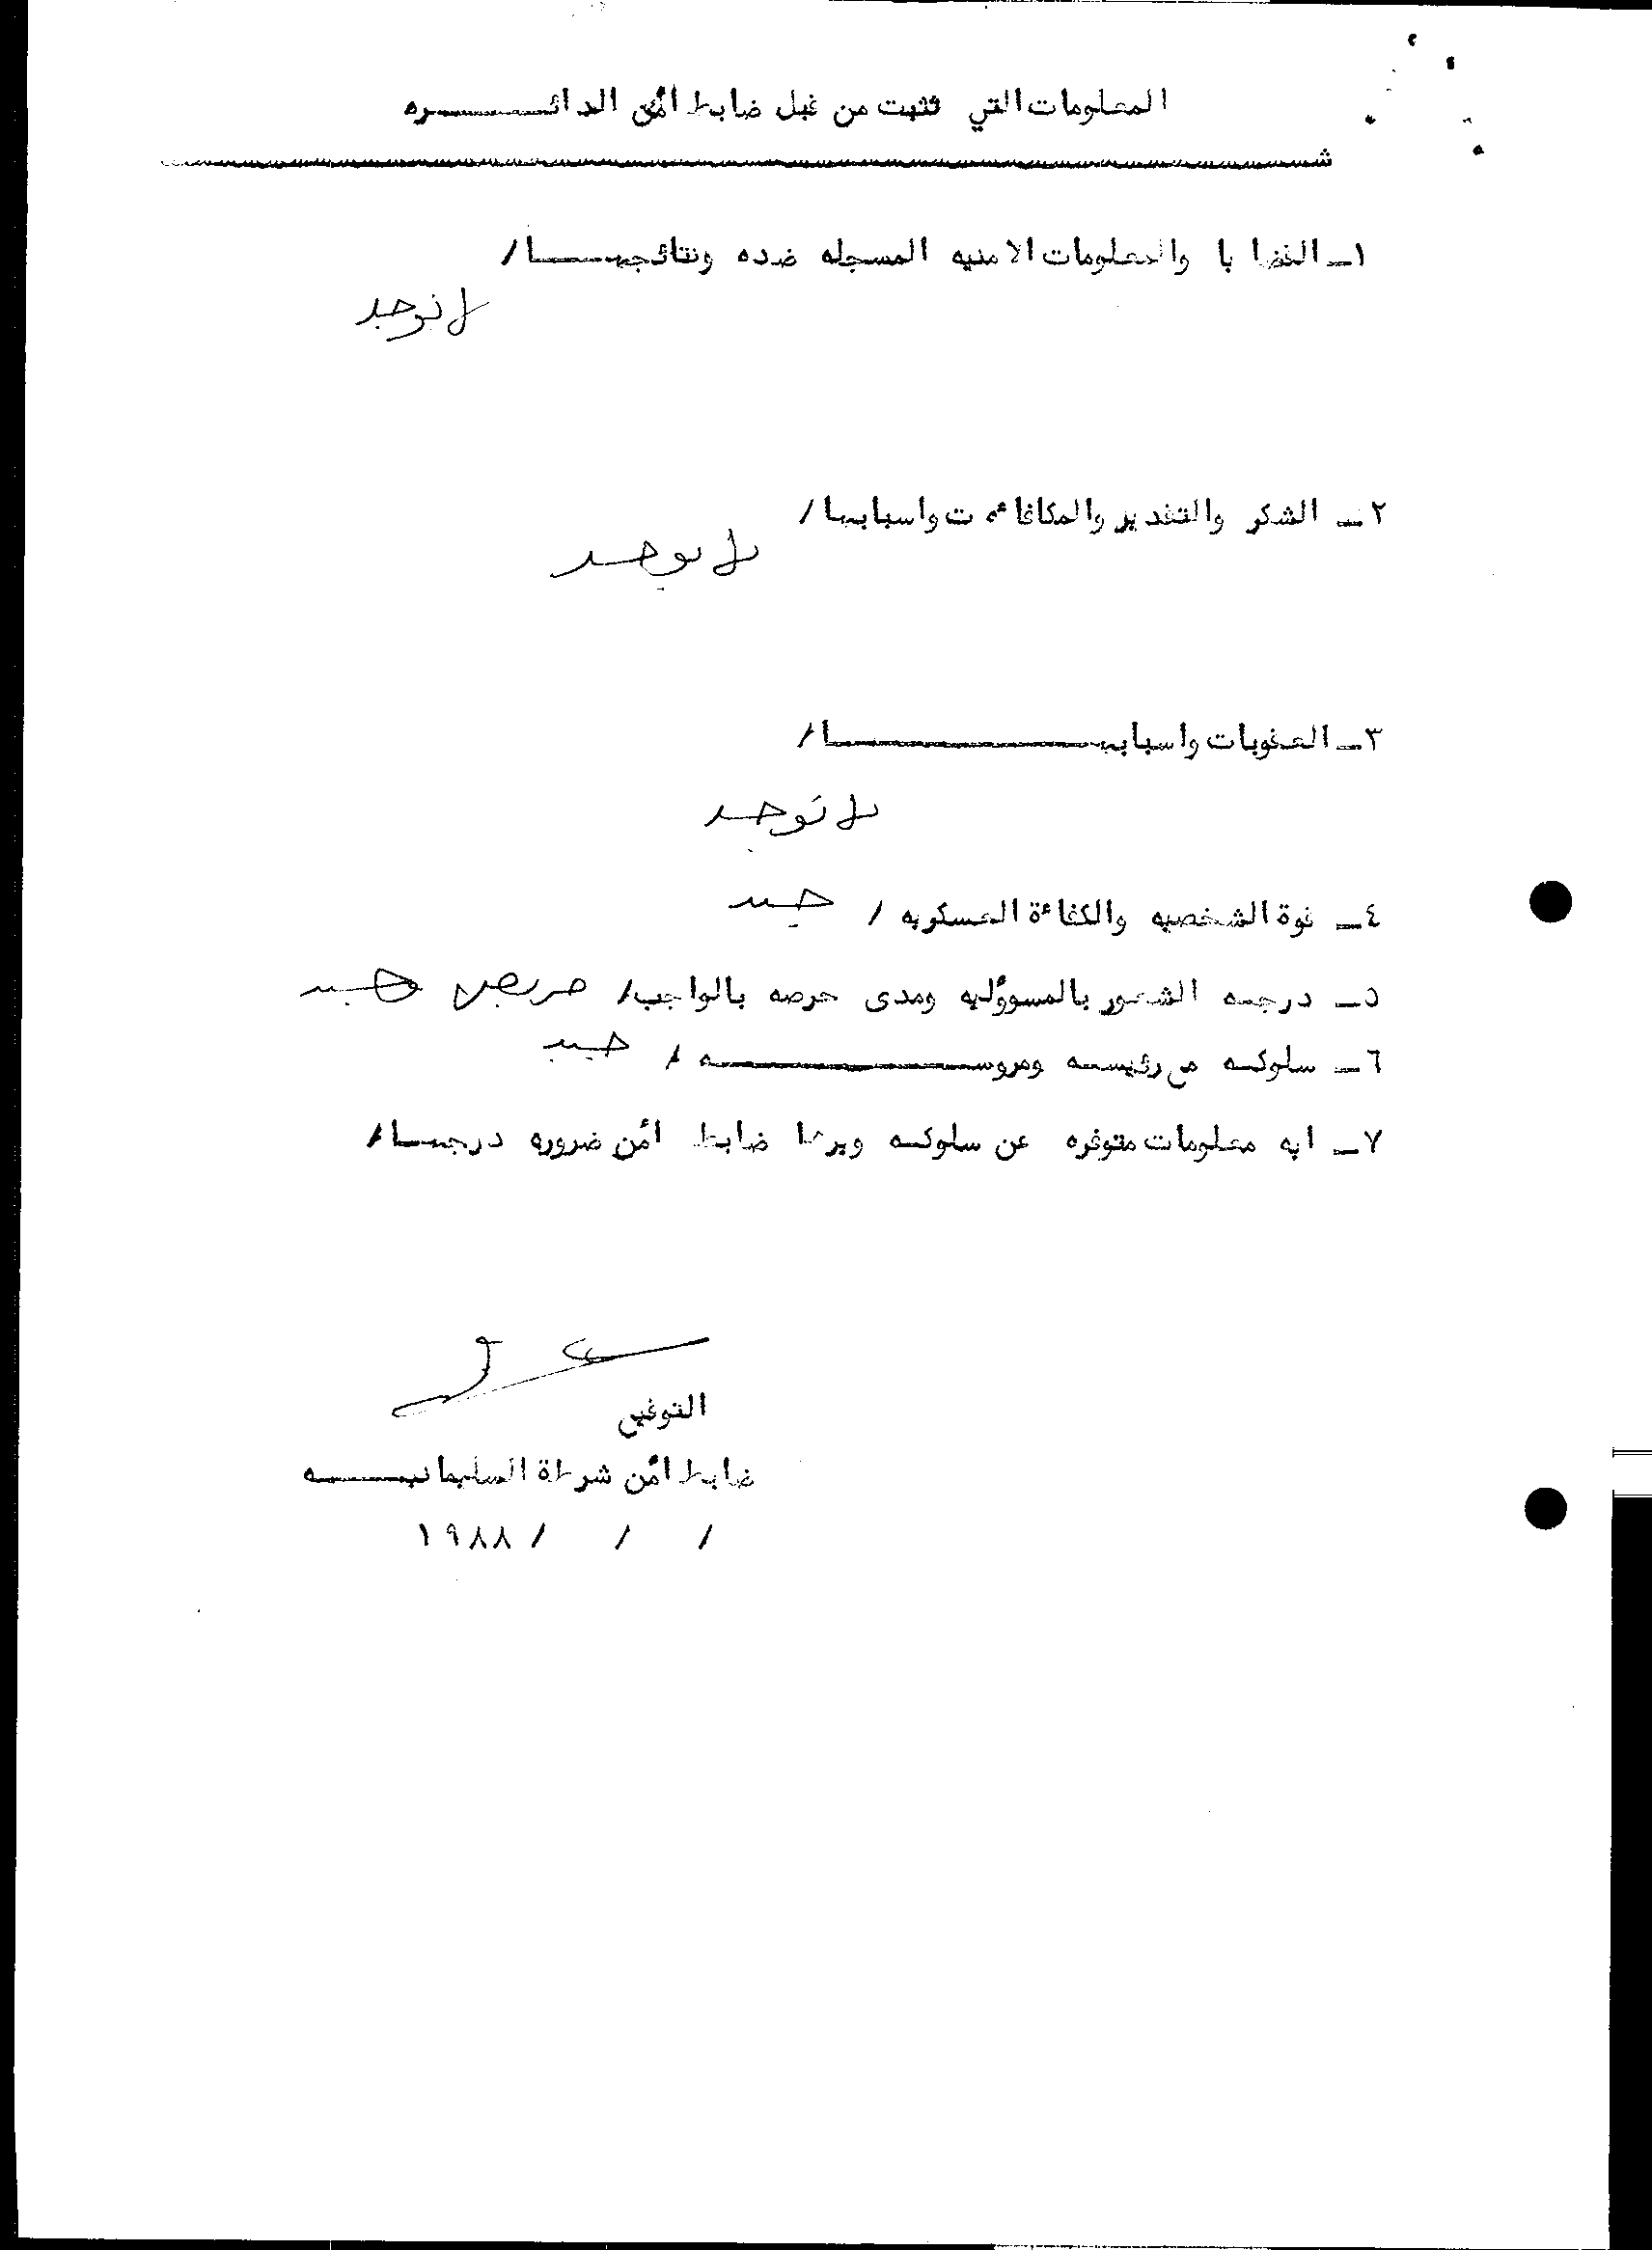 المعلومات التي تثبت من قبل ضابط أمن الدائـــــــره
١ـ القضايا والمعلومات الامنيه المسجله ضده ونتائجهــــــا/
لا توجد
٢ـ الشكر والتقدير والمكافاءت واسبابها/
لا يوجد
٣ـ العقوبات واسبابهــــــــــــــا/
لا توجد
٤ـ قوة الشخصيه والكفاءة العسكريه / جيد
٥ـ درجه الشعور بالمسوؤليه ومدى حرصه بالواجب/ حريص وجيد
٦ـ سلوكه مع رئيسه ومروســــــــــــه / جيد
٧ـ ايه معلومات متوفره عن سلوكه ويرىا ضابط أمن ضروره درجهــــا/
التوقيع
ضابط أمن شرطة السليمانيــــــه
/ / / ١٩٨٨